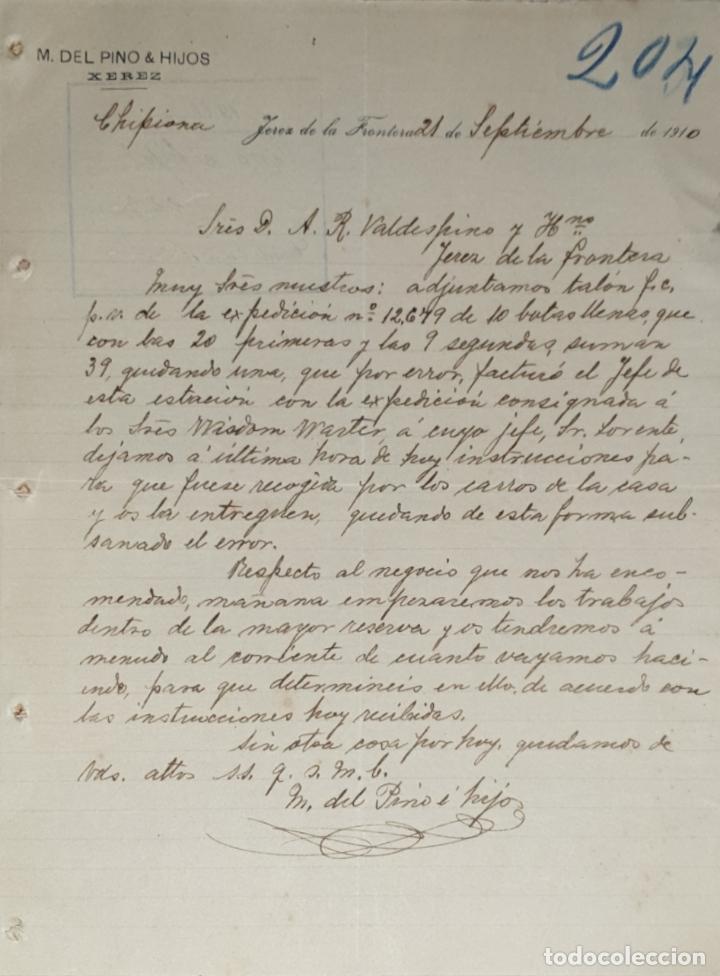 M. DEL PINO & HIJOS
XEREZ
204
Chipiona Jerez de la Frontera 21 de Septiembre de 1910
Srés D. A. R. Valdespino y Hno
Jerez de la frontera
Muy Srés nuestros: adjuntamos talón f.c.
p.v. de la expedición nº 12,679 de 10 botas llenas, que
con las 20 primeras y las 9 segundas, suman
39, quedando una, que por error, facturó el Jefe de
esta estación con la expedición consignada á
los Srés Wisdom Warter, á cuyo jefe, Sr. Lorente,
dejamos á última hora de hoy instrucciones pa-
ra que fuese recogida por los carros de la casa
y os la entreguen, quedando de esta forma sub-
sanado el error.
Respecto al negocio que nos ha enco-
mendado, mañana empezaremos los trabajos
dentro de la mayor reserva y os tendremos á
menudo al corriente de cuanto vayamos haci-
endo, para que determineis en ello, de acuerdo con
las instrucciones hoy recibidas.
Sin otra cosa por hoy, quedamos de
Vds. attos s.s. q. s. m. b.
M. del Pino é hijos
todocoleccion.net